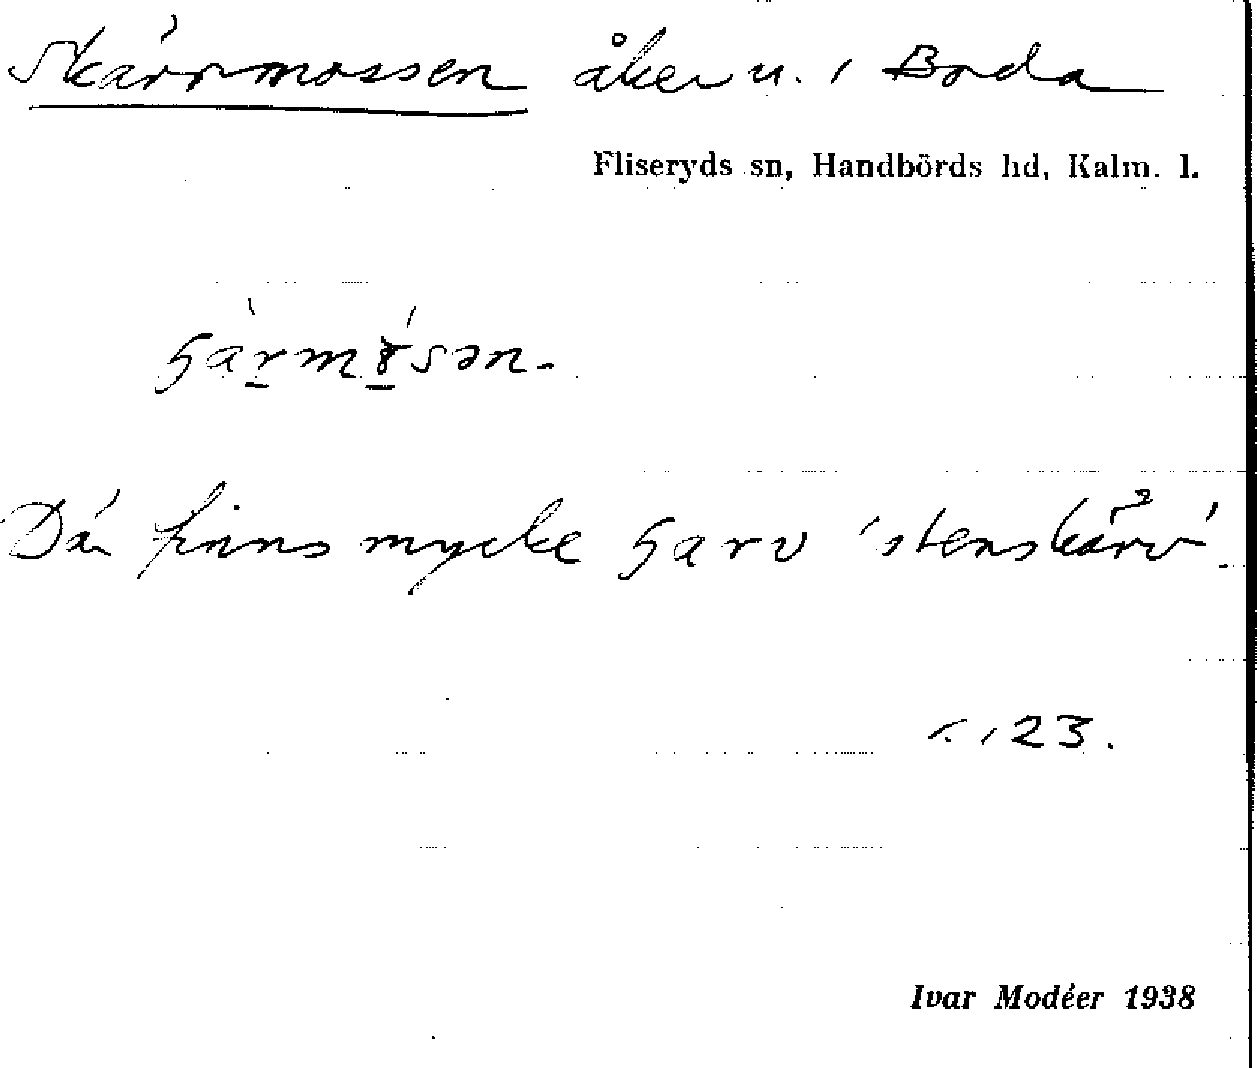 Skärrmossen åker n. i Boda
Fliseryds sn, Handbörds hd, Kalm. l.
Där finns mycke ɧarv 'stenskärv'.
23.
Ivar Modéer 1938